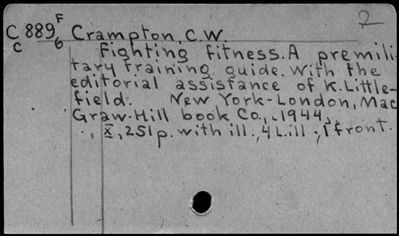 2
C 889 F Crampton, C.W.
C 6 Fighting fitness. A premili-
tary training guide. With the
editorial assistance of K. Little-
field. New York-London, Mac
Graw-Hill book Co., c1944,
X, 251p. with ill., 4 L. ill., 1 front.